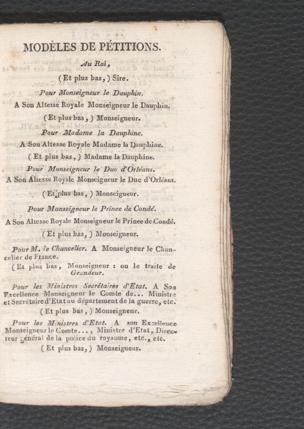 MODÈLES DE PÉTITIONS.
Au Roi,
(Et plus bas,) Sire.
Pour Monseigneur le Dauphin.
A Son Altesse Royale Monseigneur le Dauphin.
(Et plus bas,) Monseigneur.
Pour Madame la Dauphine.
A Son Altesse Royale Madame la Dauphine.
(Et plus bas,) Madame la Dauphine.
Pour Monseigneur le Duc d'Orléans.
A Son Altesse Royale Monseigneur le Duc d'Orléans.
(Et plus bas,) Monseigneur.
Pour Monseigneur le Prince de Condé.
A Son Altesse Royale Monseigneur le Prince de Condé.
(Et plus bas,) Monseigneur.
Pour M. le Chancelier. A Monseigneur le Chan-
celier de France.
(Et plus bas, Monseigneur : on le traite de
Grandeur.
Pour les Ministres Secrétaires d'Etat. A Son
Excellence Monseigneur le Comte de... Ministre
et Secrétaire d'Etat au département de la guerre, etc.
(Et plus bas,) Monseigneur.
Pour les Ministres d'Etat. A son Excellence
Monseigneur le Comte..., Ministre d'Etat, Direc-
teur général de la police du royaume, etc., etc.
(Et plus bas,) Monseigneur.